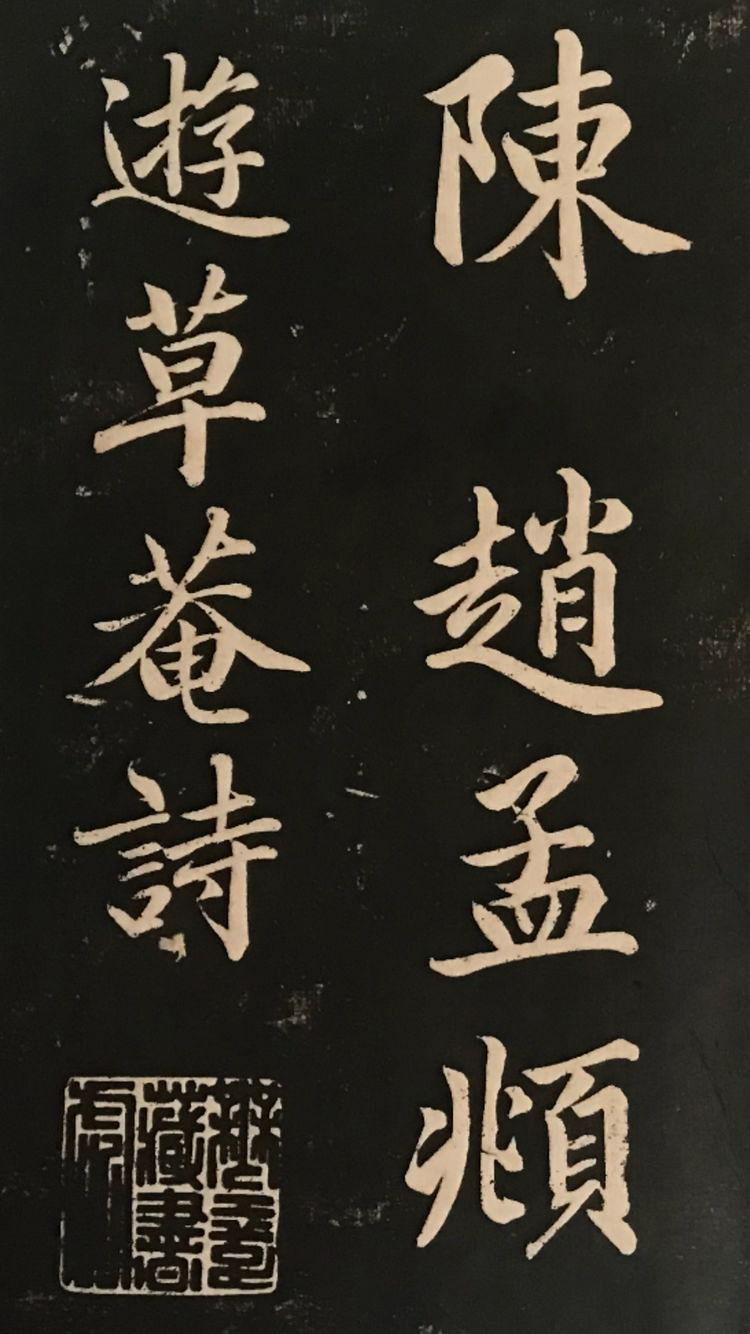 陳 趙孟頫
遊草菴詩